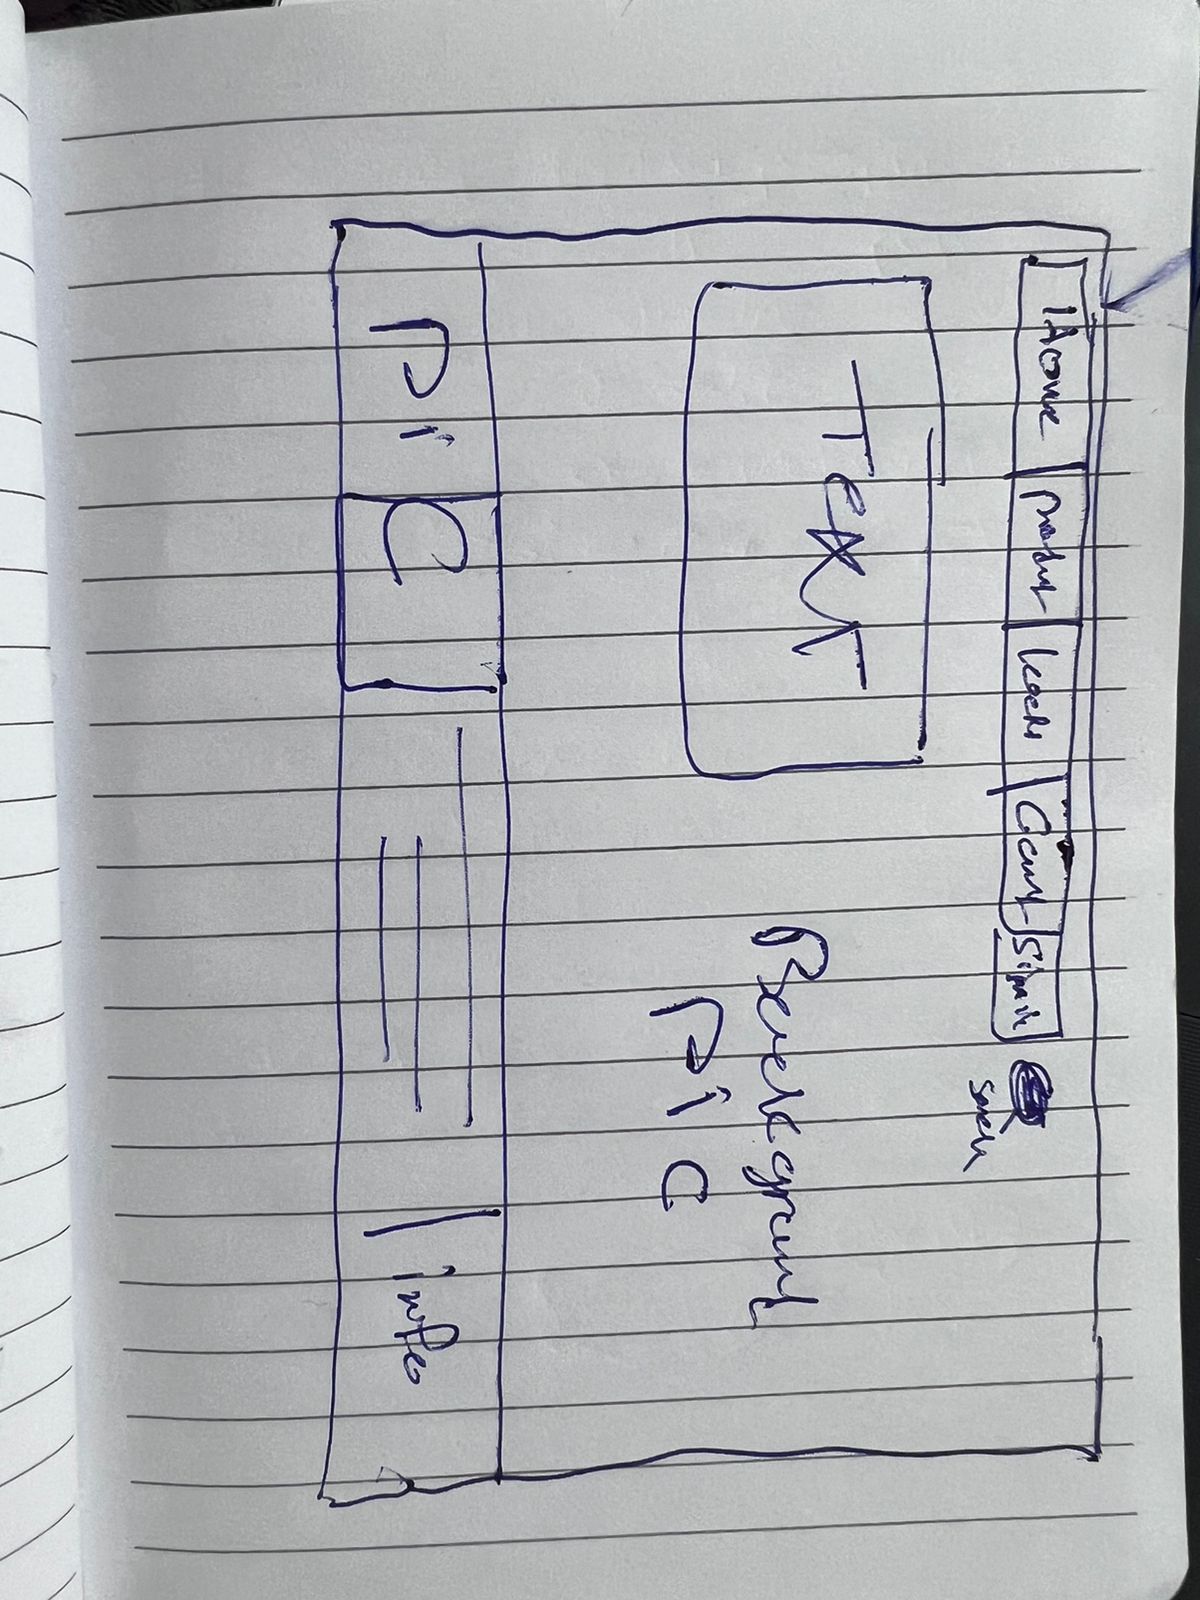 Home product Cont Sign in
serch
Text
Backgrount
Pic
Pic info